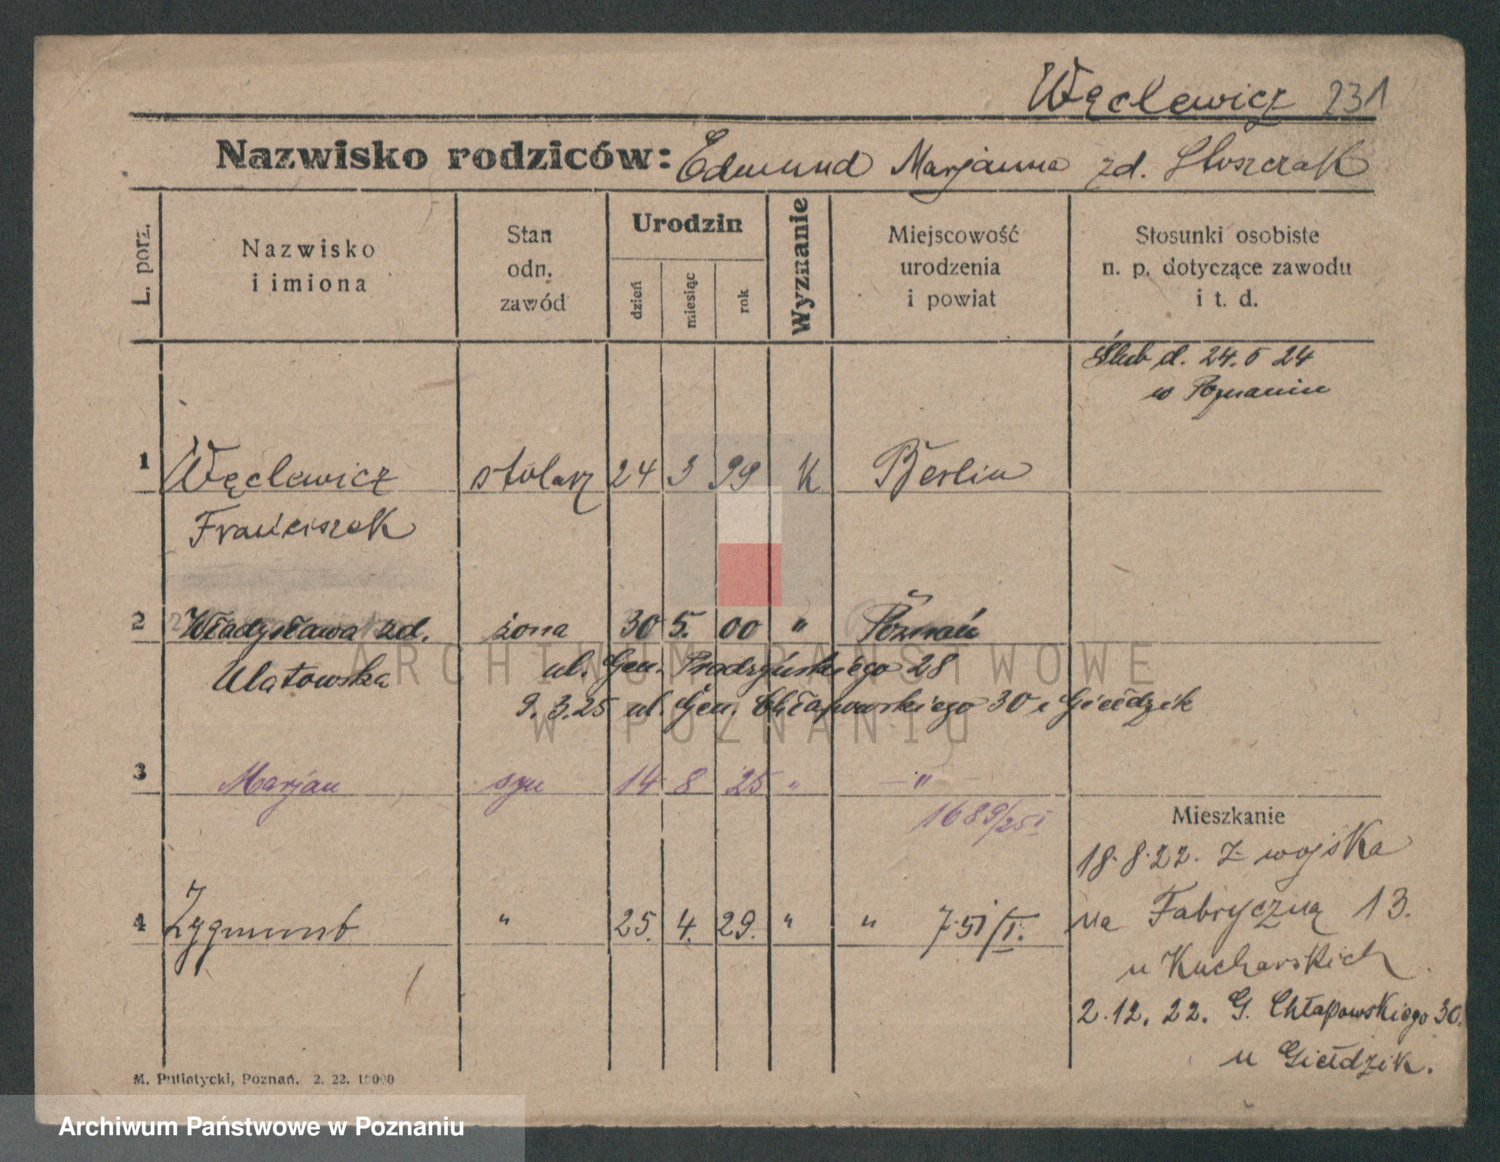 Węclewicz 231
Nazwisko rodziców: Edmund Marjanna zd.
L. porz.
Nazwisko
i imiona
Stan
odn.
zawód
Urodzin
dzień
miesiąc
rok
Wyznanie
Miejscowość
urodzenia
i powiat
Stosunki osobiste
n. p. dotyczące zawodu
i t. d.
Ślub d. 24. 5 24
w Poznaniu
1 Węclewicz stolarz 24 3 99 K Berlin
Franciszek
2 Władysława zd. żona 30 5. 00 " Poznań
Ulatowska ul. Gen. Prądzyńskiego 28
9. 3. 25 ul. Gen. Chłapowskiego 30 u Giełdzik
3 Marjan syn 14 8 25 " — "
1689/25 I
Mieszkanie
18. 8. 22. z wojska
4 Zygmunt " 25. 4. 29. " " 751/I.
na Fabryczną 13.
u Kucharskich
2. 12. 22. G. Chłapowskiego 30.
u Giełdzik.
M. Putiatycki, Poznań. 2. 22. 10000
ARCHIWUM PAŃSTWOWE
W POZNANIU
Archiwum Państwowe w Poznaniu